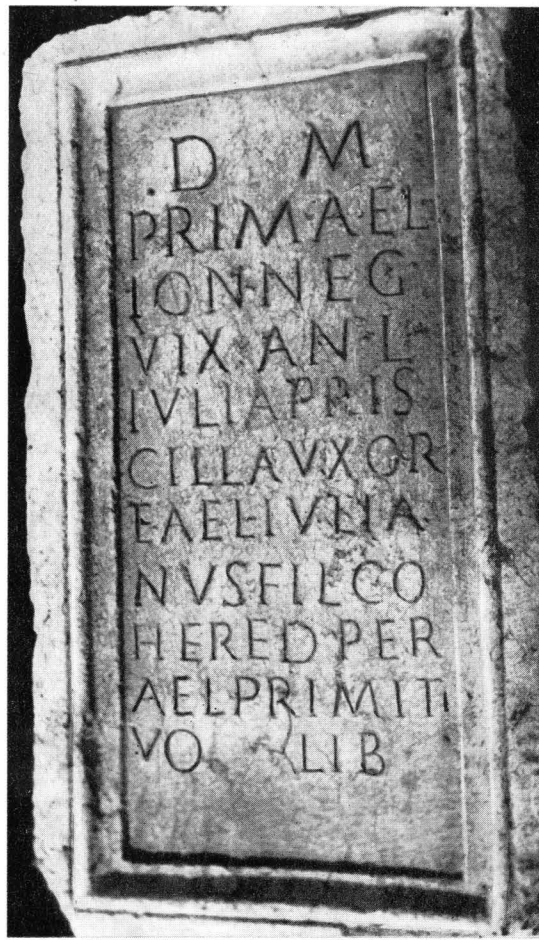 D M
PRIM·AEL
IONN·EG
VIX·AN·L
IVLIA PRIS
CILLA VXOR
E AEL IVLIA
NVS FIL CO
HERED PER
AEL PRIMITI
VO LIB